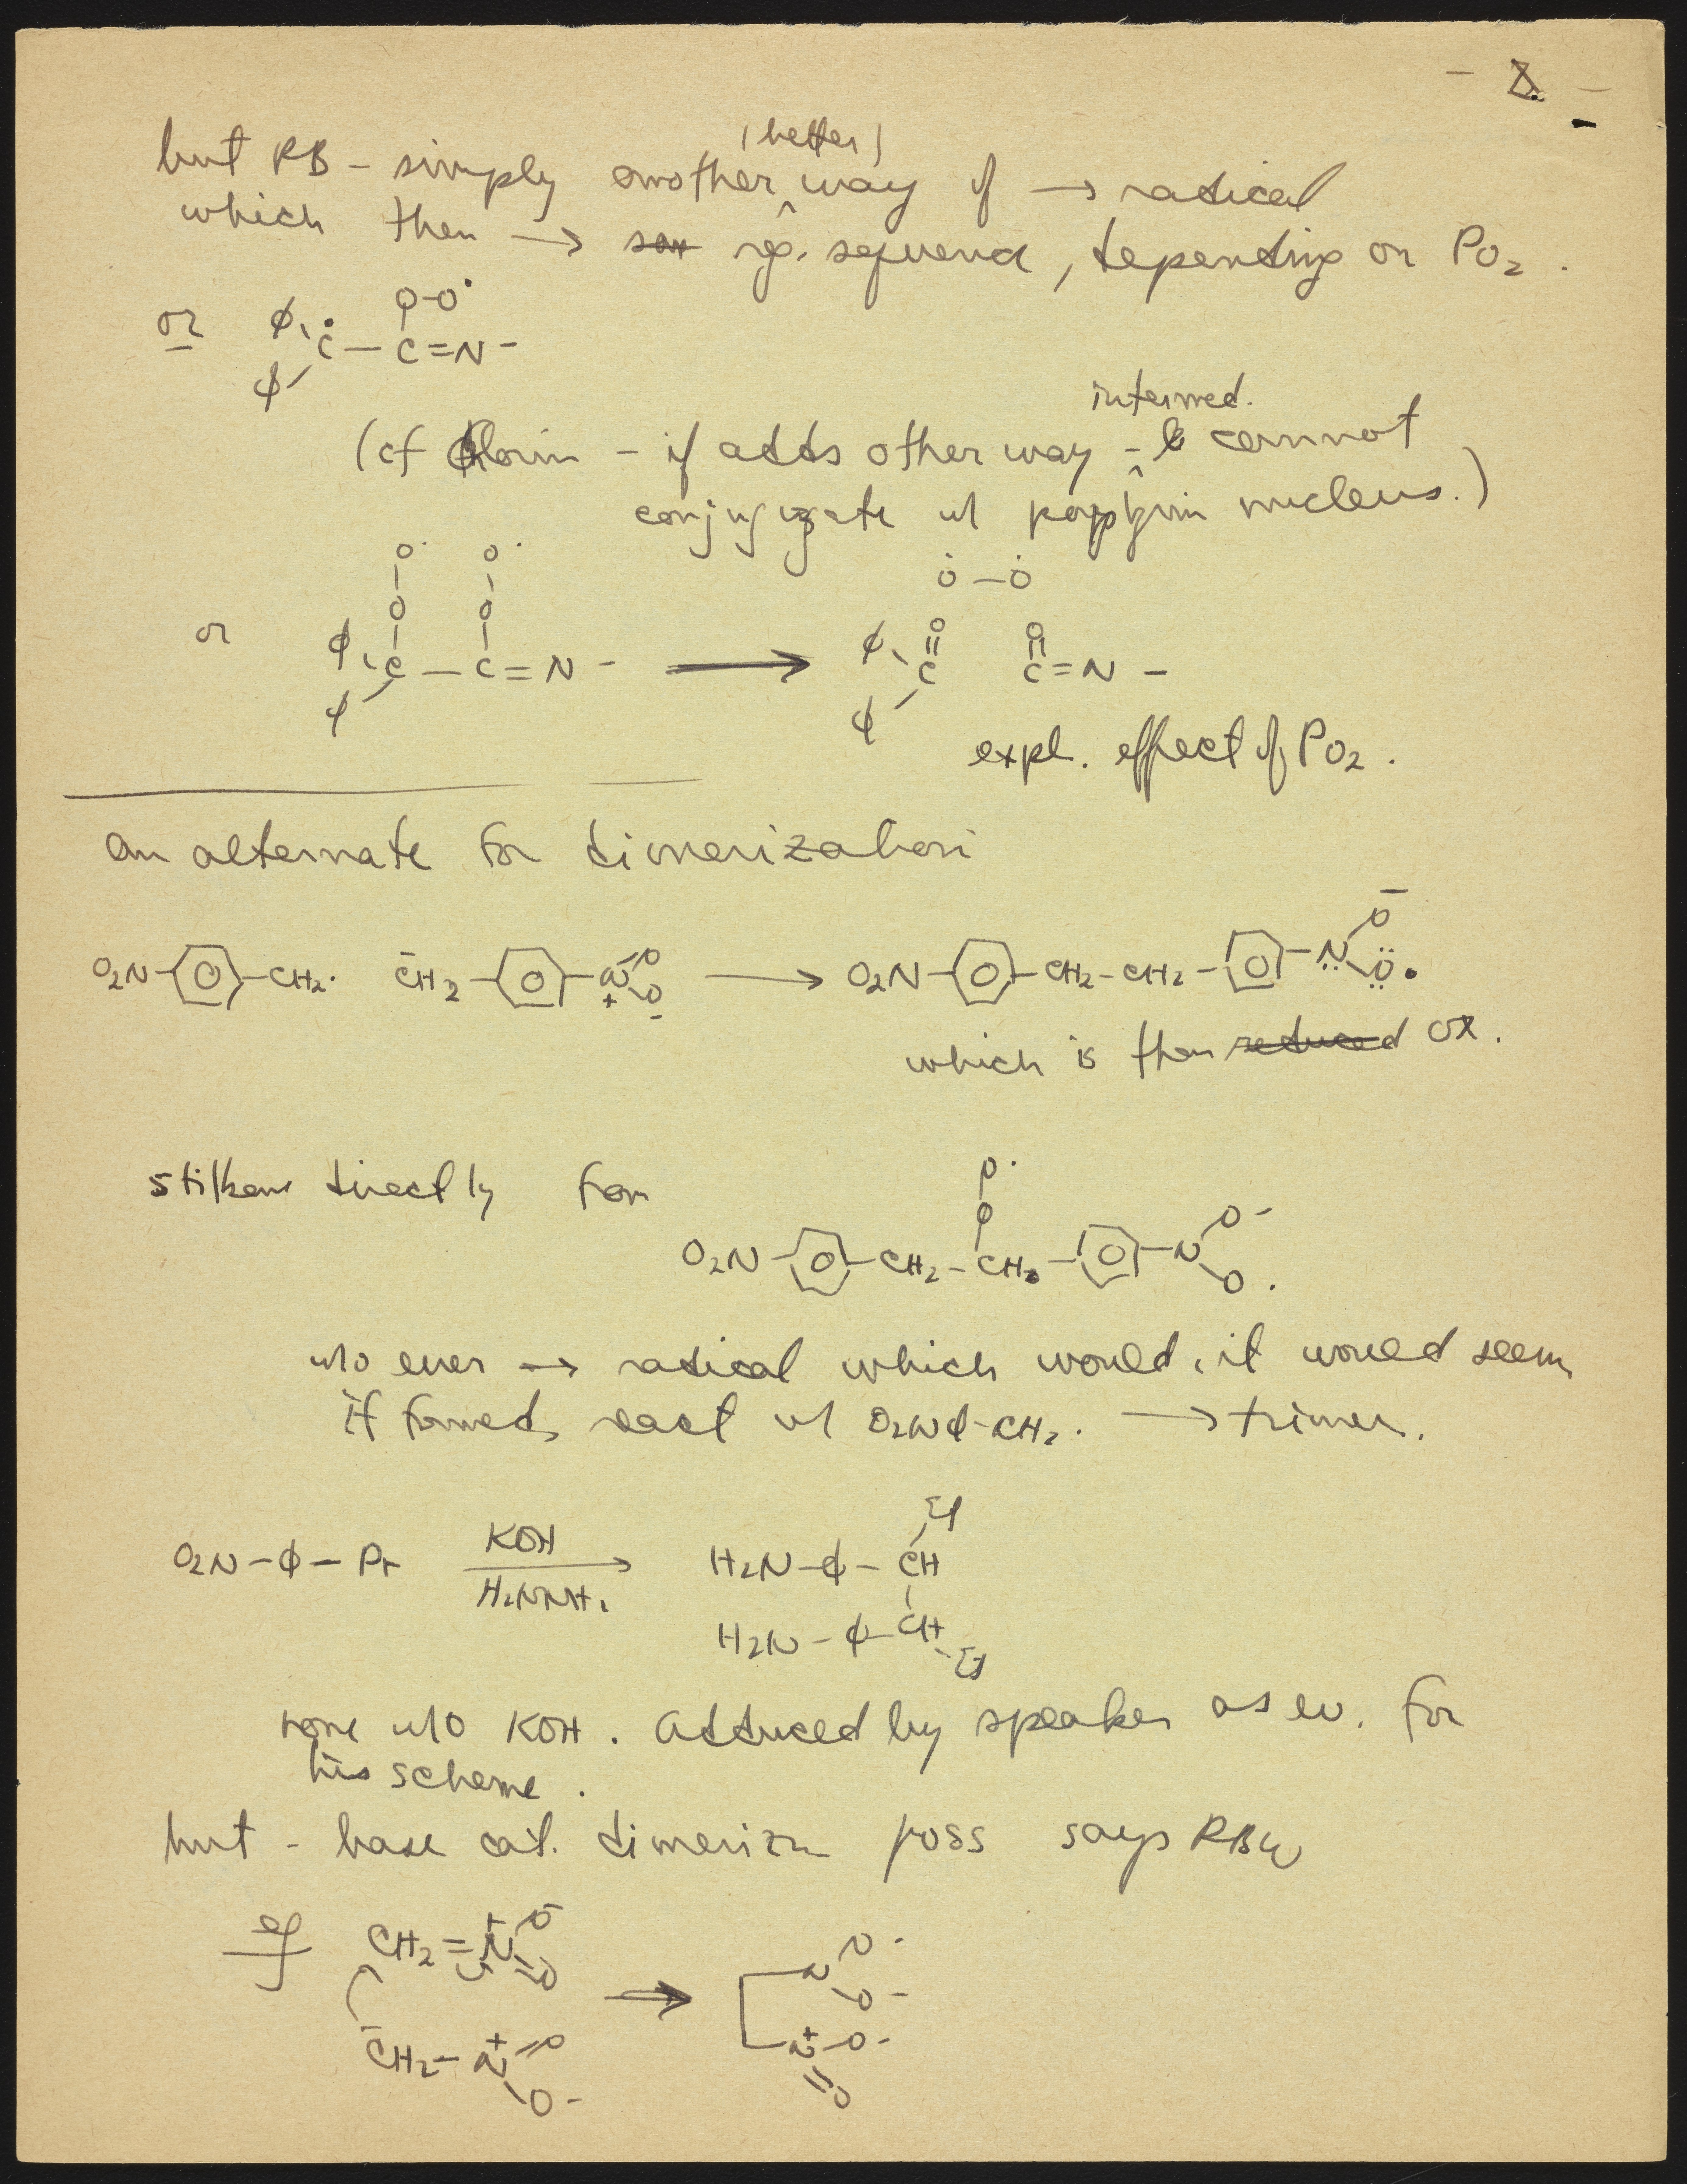 - 8. -
(better)
but RB - simply another ^ way of → radical
which then → rg. sequence, depending on PO2.
or φ φ Ċ — C=N - O-O·
intermed.
(cf Chlorin - if adds other way - ^ cannot
conjugate w/ porphyrin nucleus.)
Ȯ — Ȯ
or φ φ C — C = N - O O· O O· → φ φ C=O C=N - O
expl. effect of PO2.
An alternate for dimerization
O2N- -CH2· C̄H2- -N+ O- O- → O2N- -CH2-CH2- -N O- O·
which is then reduced ox.
stilbene directly from
O2N- -CH2-CH- -N O- O· O O·
w/o ever → radical which would, it would seem,
if formed, react w/ O2Nφ-CH2· → trimer.
O2N-φ-Pr KOH H2NNH2 → H2N-φ-CH Et
H2N-φ-CH Et
none w/o KOH. Adduced by speaker as ev. for
his scheme.
but - base cat. dimerizn poss says RBW
cf CH2=N+ O- O → N O- O-
C̄H2-N+ O O- N+ O- O